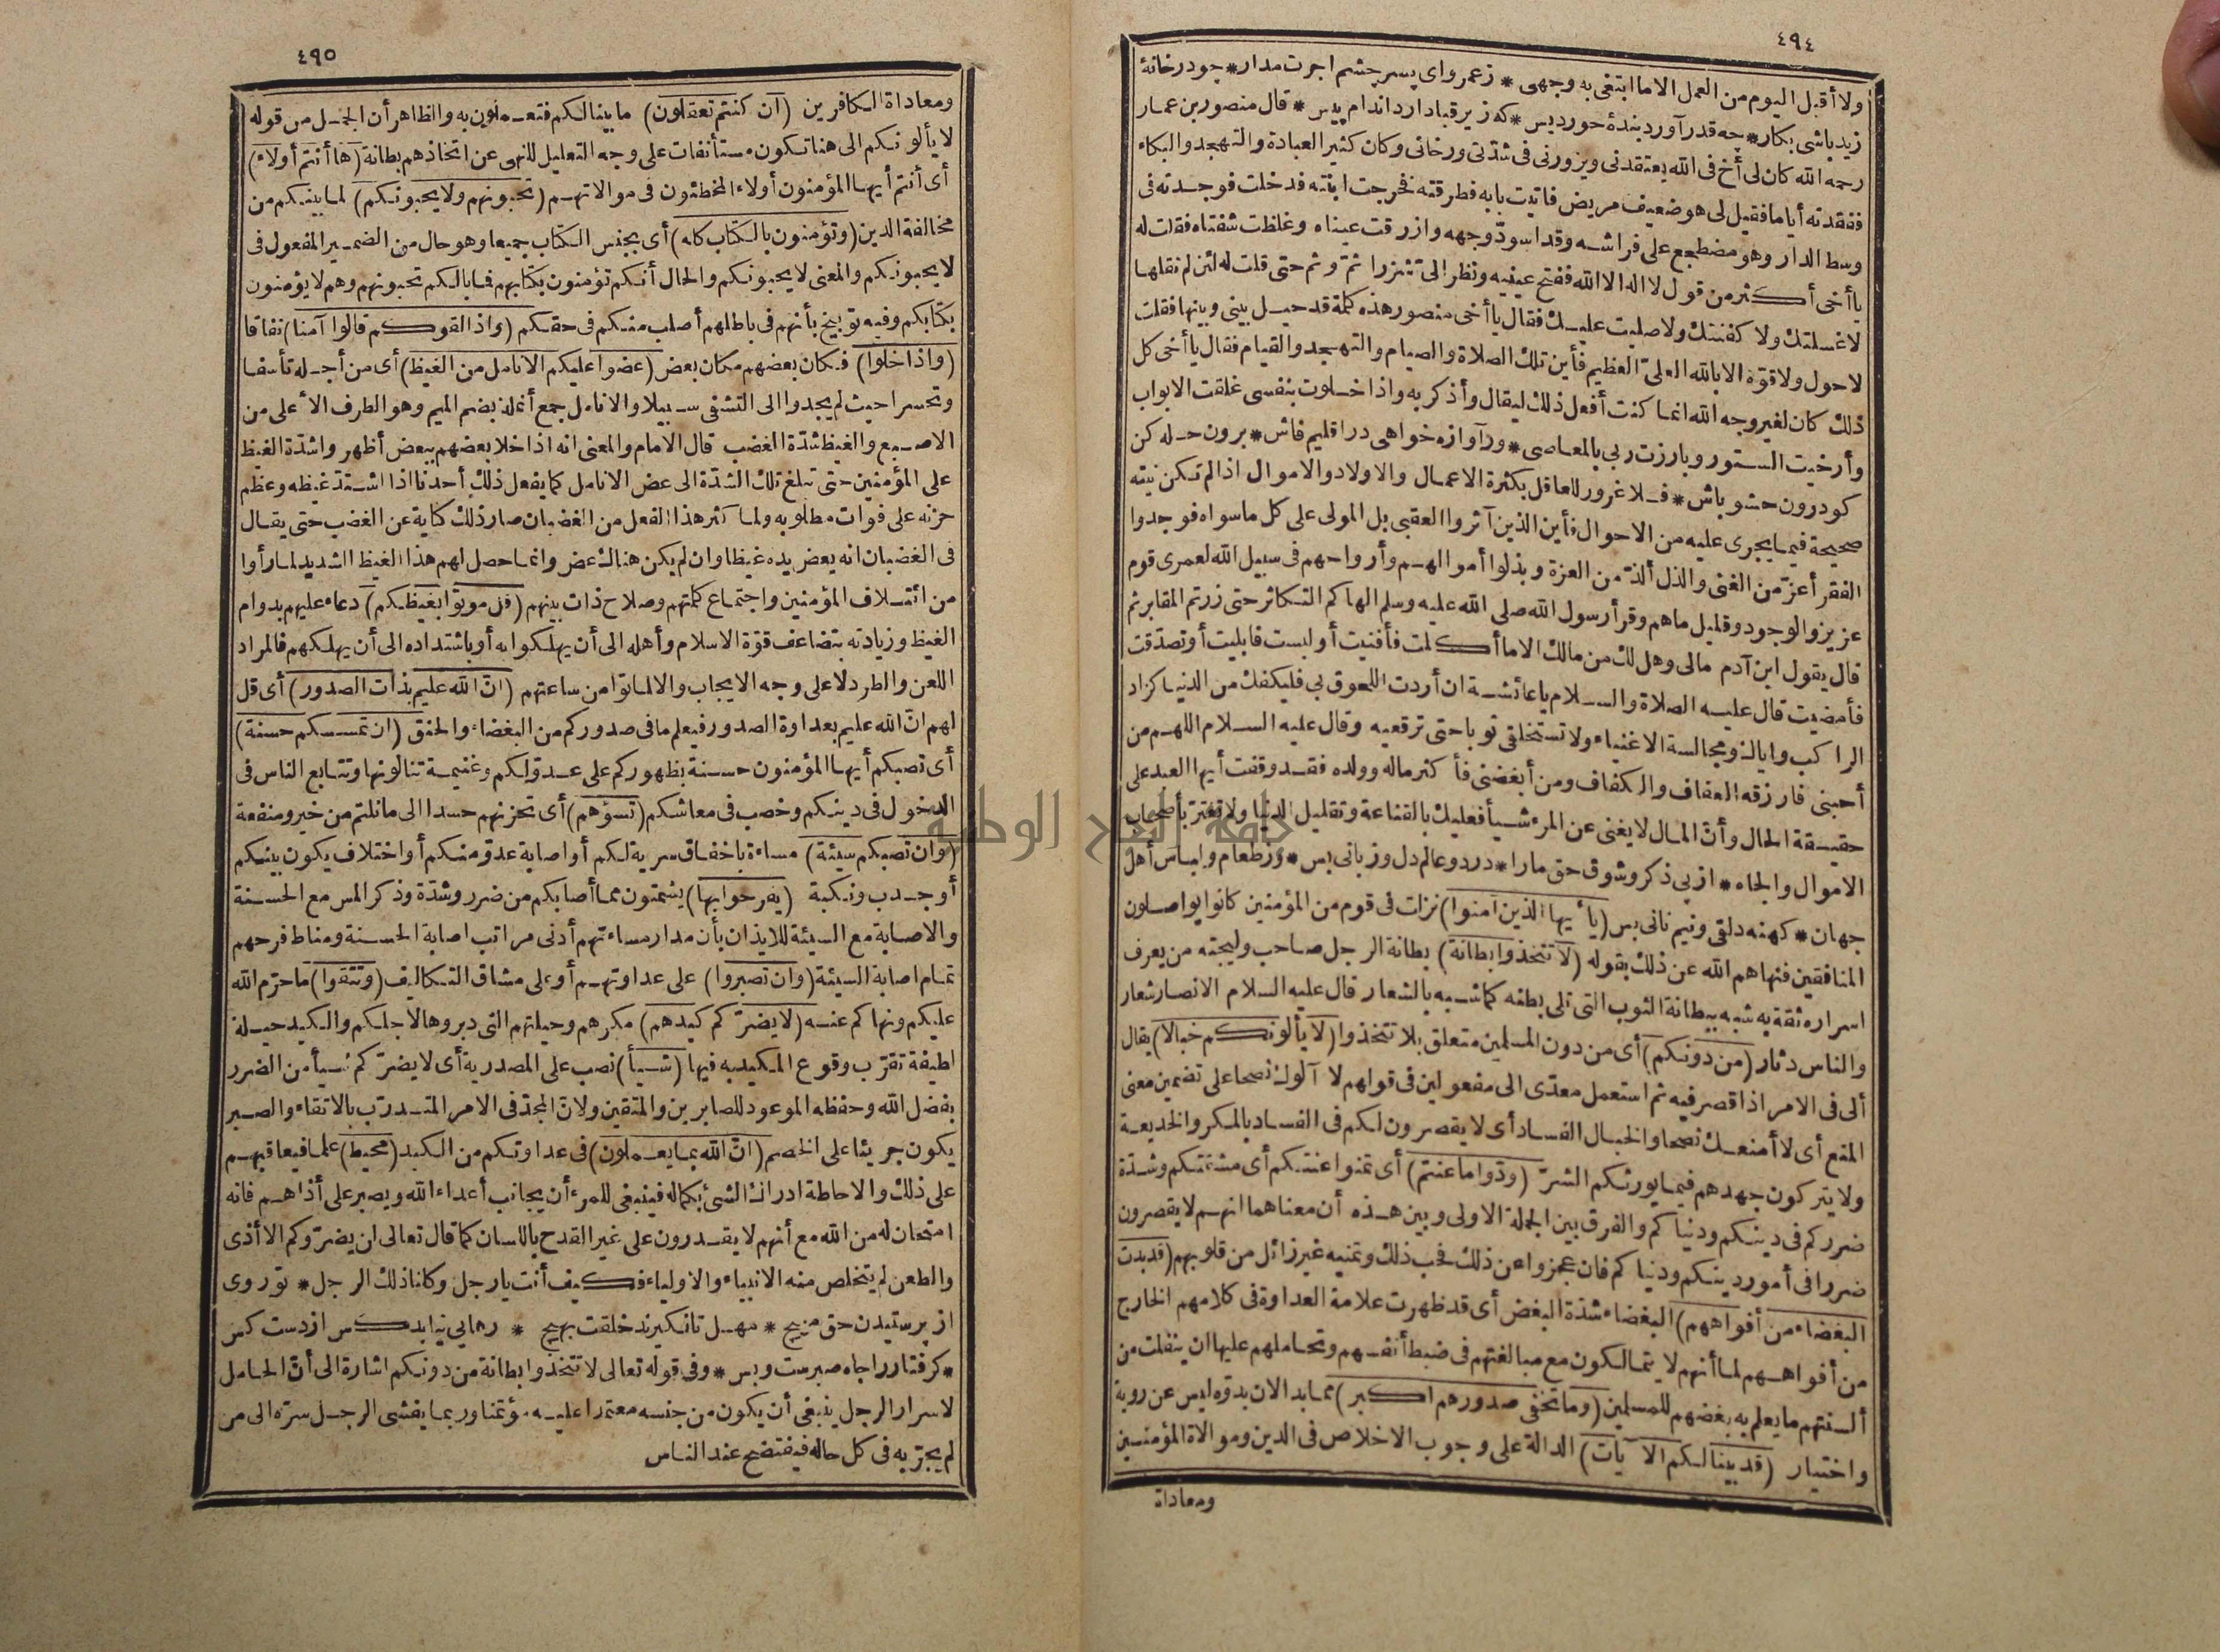 ٤٩٤
ولا أقبل اليوم من العمل الا ما ابتغى به وجهى * زعمرو اى پسر چشم اجرت مدار * چو در خانهٔ
زيد باشى بكار * چه قدر آورد بندهٔ حورديس * كه زير قبا دارد اندام پيس * قال منصور بن عمار
رحمه الله كان لى أخ فى الله يعتقدنى ويزورنى فى شدتى ورخائى وكان كثير العبادة والتهجد والبكاء
ففقدته أياما فقيل لى هو ضعيف مريض فاتيت بابه فطرقته فخرجت ابنته فدخلت فوجدته فى
وسط الدار وهو مضطجع على فراشه وقد اسودّ وجهه وازرقت عيناه وغلظت شفتاه فقلت له
يا أخى أكثر من قول لا اله الا الله ففتح عينيه ونظر الىّ شزرا ثم وثم حتى قلت له لئن لم تقلها
لا غسلتك ولا كفنتك ولا صليت عليك فقال يا أخى منصور هذه كلمة قد حيل بينى وبينها فقلت
لا حول ولا قوّة الا بالله العلىّ العظيم فأين تلك الصلاة والصيام والتهجد والقيام فقال يا أخى كل
ذلك كان لغير وجه الله انما كنت أفعل ذلك ليقال وأذكر به واذا خلوت بنفسى غلقت الابواب
وأرخيت الستور وبارزت ربى بالمعاصى * ورآوازه خواهى در اقليم فاش * برون حله كن
كو درون حشو باش * فلا غرور للعاقل بكثرة الاعمال والاولاد والاموال اذا لم تكن نيته
صحيحة فيما يجرى عليه من الاحوال فأين الذين آثروا العقبى بل المولى على كل ما سواه فوجدوا
الفقر أعزّ من الغنى والذل ألذّ من العزة وبذلوا أموالهم وأرواحهم فى سبيل الله لعمرى قوم
عزيز والوجود وقليل ما هم وقرأ رسول الله صلى الله عليه وسلم الهاكم التكاثر حتى زرتم المقابر ثم
قال يقول ابن آدم مالى وهل لك من مالك الا ما أكلت فأفنيت أو لبست فابليت أو تصدّقت
فأمضيت قال عليه الصلاة والسلام يا عائشة ان أردت اللحوق بى فليكفك من الدنيا كزاد
الراكب واياك ومجالسة الاغنياء ولا تستخلقى ثوبا حتى ترقعيه وقال عليه السلام اللهم من
أحبنى فارزقه العفاف والكفاف ومن أبغضنى فأكثر ماله وولده فقد وقفت أيها العبد على
حقيقة الحال وأنّ المال لا يغنى عن المرء شيأ فعليك بالقناعة وتقليل الدنيا ولا تغترّ بأصحاب
الاموال والجاه * از پى ذكر وشوق حق مارا * در دو عالم دل وزبانى بس * وز طعام ولباس أهل
جهان * كهنه دلقى ونيم نانى بس (يا أيها الذين آمنوا) نزلت فى قوم من المؤمنين كانوا يواصلون
المنافقين فنهاهم الله عن ذلك بقوله (لا تتخذوا بطانة) بطانة الرجل صاحب وليجته من يعرف
اسراره ثقة به شبه ببطانة الثوب التى تلى بطنه كما شبه بالشعار قال عليه السلام الانصار شعار
والناس دثار (من دونكم) أى من دون المسلمين متعلق بلا تتخذوا (لا يألونكم خبالا) يقال
ألى فى الامر اذا قصر فيه ثم استعمل معدّى الى مفعولين فى قولهم لا آلوك نصحا على تضمين معنى
المنع أى لا أمنعك نصحا والخبال الفساد أى لا يقصرون لكم فى الفساد بالمكر والخديعة
ولا يتركون جهدهم فيما يورثكم الشرّ (ودّوا ما عنتم) أى تمنوا عنتكم أى مشقتكم وشدّة
ضرركم فى دينكم ودنياكم والفرق بين الجملة الاولى وبين هذه أن معناهما انهم لا يقصرون
ضررا فى أمور دينكم ودنياكم فان عجزوا عن ذلك فحب ذلك وتمنيه غير زائل من قلوبهم (قد بدت
البغضاء من أفواههم) البغضاء شدّة البغض أى قد ظهرت علامة العداوة فى كلامهم الخارج
من أفواههم لما أنهم لا يتمالكون مع مبالغتهم فى ضبط أنفسهم وتحاملهم عليها ان ينفلت من
ألسنتهم ما يعلم به بغضهم للمسلمين (وما تخفى صدورهم اكبر) مما بدا لان بدوّه ليس عن روية
واختيار (قد بينا لكم الآيات) الدالة على وجوب الاخلاص فى الدين وموالاة المؤمنين
ومعاداة
٤٩٥
ومعاداة الكافرين (ان كنتم تعقلون) ما بينا لكم فتعملون به والظاهر أن الجمل من قوله
لا يألونكم الى هنا تكون مستأنفات على وجه التعليل للنهى عن اتخاذهم بطانة (ها أنتم أولاء)
أى أنتم أيها المؤمنون أولاء المخطئون فى موالاتهم (تحبونهم ولا يحبونكم) لما بينكم من
مخالفة الدين (وتؤمنون بالكتاب كله) أى بجنس الكتاب جميعا وهو حال من الضمير المفعول فى
لا يحبونكم والمعنى لا يحبونكم والحال أنكم تؤمنون بكتابهم فما بالكم تحبونهم وهم لا يؤمنون
بكتابكم وفيه توبيخ بأنهم فى باطلهم أصلب منكم فى حقكم (واذا لقوكم قالوا آمنا) نفاقا
(واذا خلوا) فكان بعضهم مكان بعض (عضوا عليكم الانامل من الغيظ) أى من أجله تأسفا
وتحسرا حيث لم يجدوا الى التشفى سبيلا والانامل جمع أنملة بضم الميم وهو الطرف الأعلى من
الاصبع والغيظ شدّة الغضب قال الامام والمعنى انه اذا خلا بعضهم ببعض أظهروا شدّة الغيظ
على المؤمنين حتى تبلغ تلك الشدّة الى عض الانامل كما يفعل ذلك أحدنا اذا اشتدّ غيظه وعظم
حزنه على فوات مطلوبه ولما كثر هذا الفعل من الغضبان صار ذلك كناية عن الغضب حتى يقال
فى الغضبان انه يعض يده غيظا وان لم يكن هناك عض وانما حصل لهم هذا الغيظ الشديد لما رأوا
من ائتلاف المؤمنين واجتماع كلمتهم وصلاح ذات بينهم (قل موتوا بغيظكم) دعاء عليهم بدوام
الغيظ وزيادته بتضاعف قوّة الاسلام وأهله الى أن يهلكوا به أو باشتداده الى أن يهلكهم فالمراد
اللعن والطرد لا على وجه الايجاب والا لماتوا من ساعتهم (انّ الله عليم بذات الصدور) أى قل
لهم انّ الله عليم بعداوة الصدور فيعلم ما فى صدوركم من البغضاء والحنق (ان تمسسكم حسنة)
أى تصبكم أيها المؤمنون حسنة بظهوركم على عدوّلكم وغنيمة تنالونها وتتابع الناس فى
الدخول فى دينكم وخصب فى معاشكم (تسؤهم) أى تحزنهم حسدا الى ما نلتم من خير ومنفعة
(وان تصبكم سيئة) مساءة باخفاق سرية لكم أو اصابة عدوّ منكم أو اختلاف يكون بينكم
أو جدب ونكبة (يفرحوا بها) يشمتون مما أصابكم من ضرر وشدّة وذكر المس مع الحسنة
والاصابة مع السيئة للايذان بأن مدار مساءتهم أدنى مراتب اصابة الحسنة ومناط فرحهم
تمام اصابة السيئة (وان تصبروا) على عداوتهم أو على مشاق التكاليف (وتتقوا) ما حرّم الله
عليكم ونهاكم عنه (لا يضرّكم كيدهم) مكرهم وحيلتهم التى دبروها لاجلكم والكيد حيلة
لطيفة تقرّب وقوع المكيد به فيها (شيأ) نصب على المصدرية أى لا يضرّكم شيأ من الضرر
بفضل الله وحفظه الموعود للصابرين والمتقين ولانّ المجدّ فى الامر المتدرّب بالاتقاء والصبر
يكون جريئا على الخصم (انّ الله بما يعملون) فى عداوتكم من الكيد (محيط) علما فيعاقبهم
على ذلك والاحاطة ادراك الشئ بكماله فينبغى للمرء أن يجانب أعداء الله ويصبر على أذاهم فانه
امتحان له من الله مع أنهم لا يقدرون على غير القدح باللسان كما قال تعالى لن يضرّوكم الا أذى
والطعن لم يتخلص منه الانبياء والاولياء فكيف أنت يا رجل وكانا ذلك الرجل * تو روى
از پرستيدن حق مپيچ * مهل تا نگيرند خلقت بهيچ * رهايى نيابد كس از دست كس
* گرفتار را چاه صبرست وبس * وفى قوله تعالى لا تتخذوا بطانة من دونكم اشارة الى أنّ الحامل
لاسرار الرجل ينبغى أن يكون من جنسه معتمدا عليه مؤتمنا وربما يفشى الرجل سرّه الى من
لم يجرّبه فى كل حاله فيفتضح عند الناس